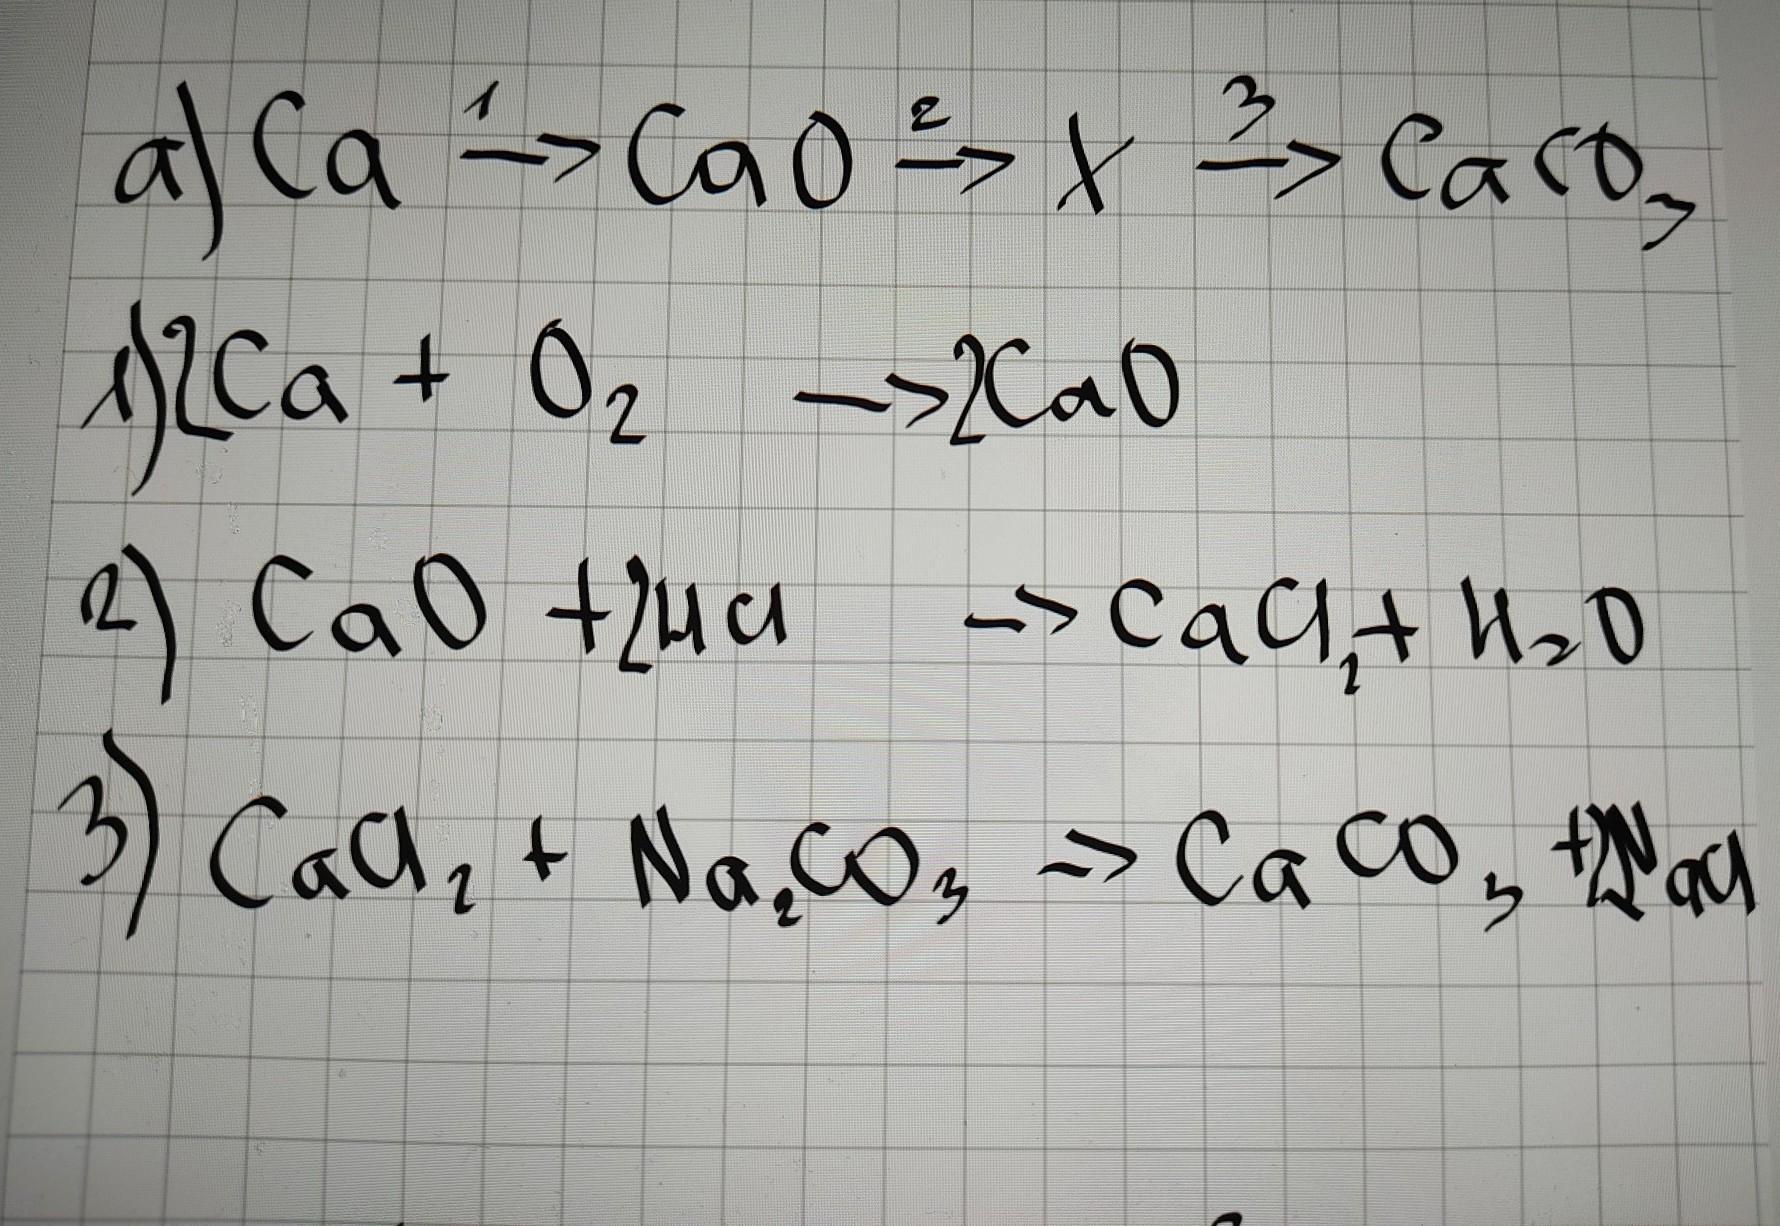 a) Ca 1→ CaO 2→ X 3→ CaCO₃
1) 2Ca + O₂ → 2CaO
2) CaO + 2HCl → CaCl₂ + H₂O
3) CaCl₂ + Na₂CO₃ → CaCO₃ + 2NaCl